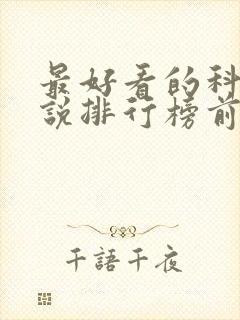 最好看的科
說排行榜前
千語千夜